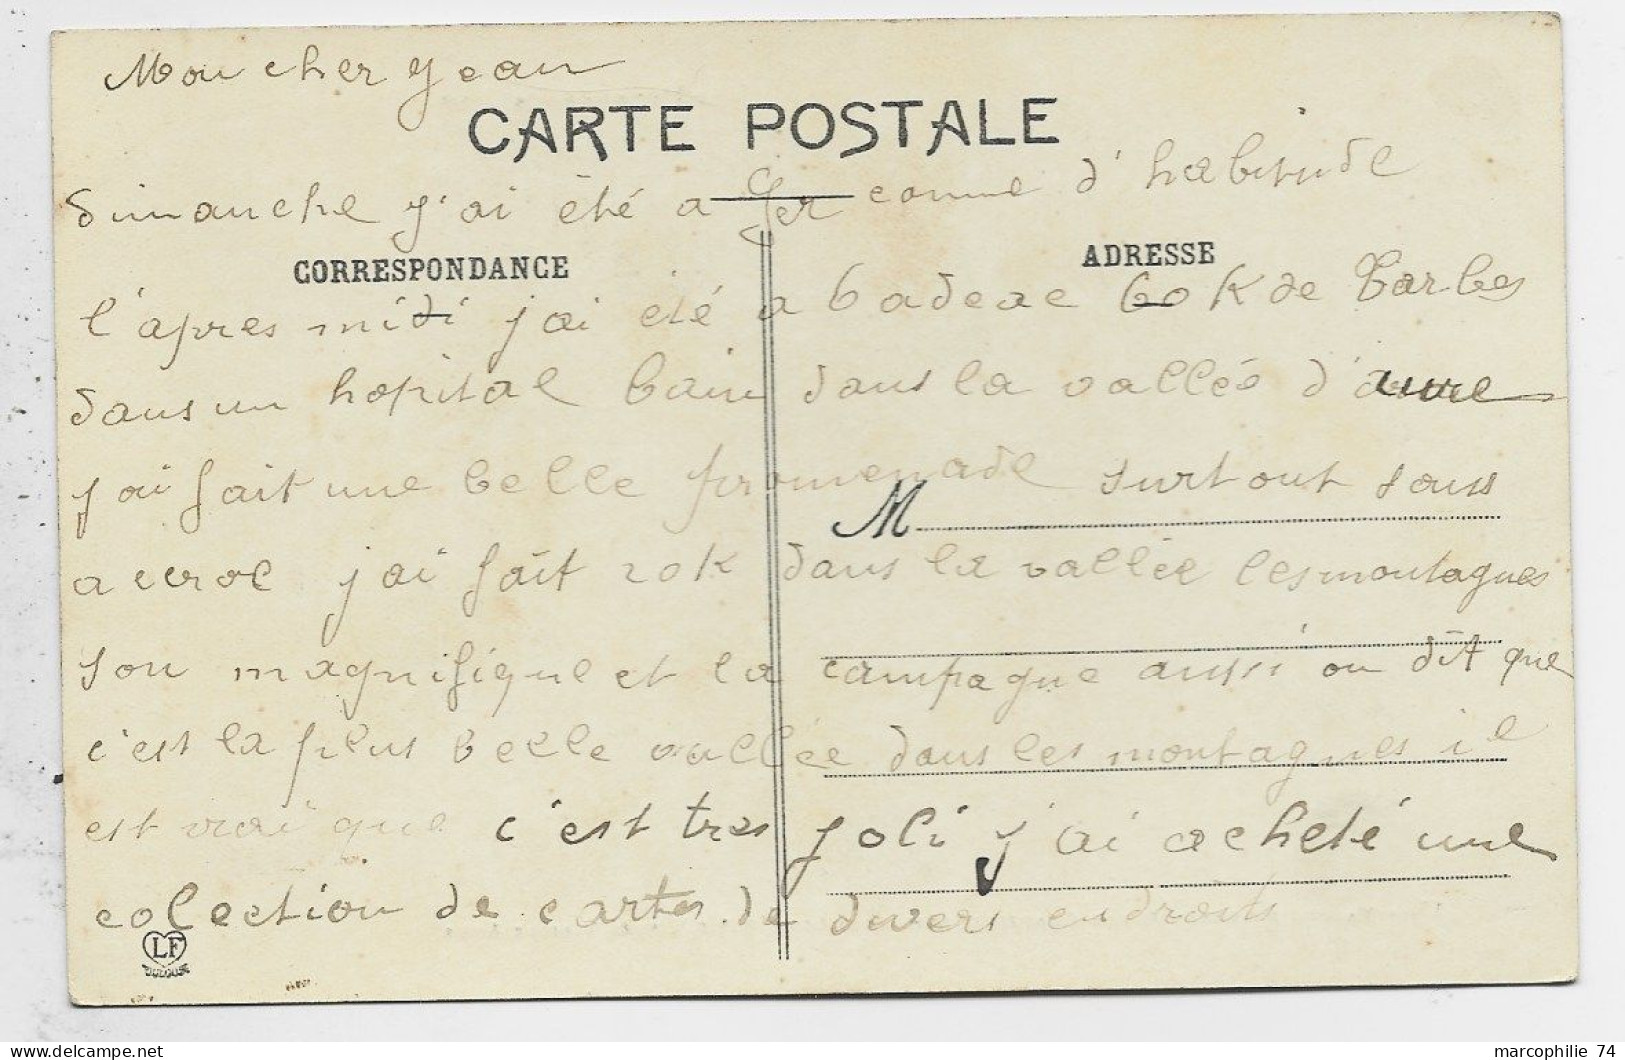 Mon cher Jean
CARTE POSTALE
dimanche j'ai été a Ger comme d'habitude
CORRESPONDANCE
ADRESSE
l'apres midi j'ai eté a Cadeac 60 K de Tarbes
dans un hopital bain dans la vallée d'aure
j'ai fait une belle promenade surtout sous
M
j'ai fait 20 K dans la vallée les montagnes
son magnifique et la campagne aussi on dit que
c'est la plus belle vallée dans les montagnes il
est vrai que c'est tres joli j'ai acheté une
colection de cartes de divers endroits
LF
TOULOUSE
marcophilie 74